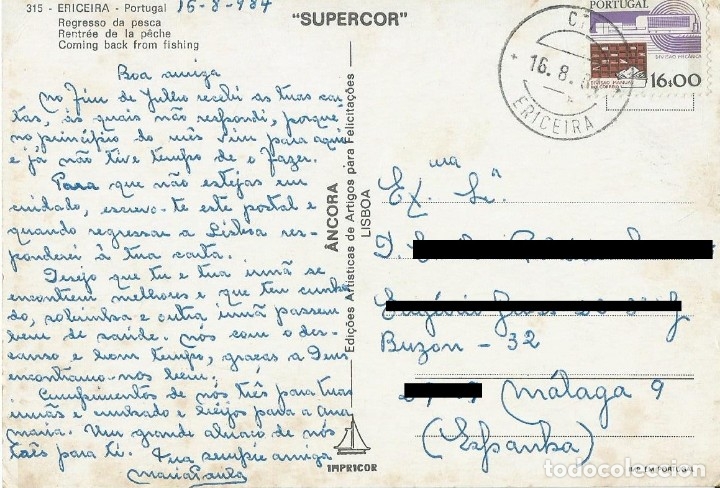 315 - ERICEIRA - Portugal 16-8-984
Regresso da pesca
Rentrée de la pêche
Coming back from fishing
"SUPERCOR"
Boa amiga
No fim de Julho recebi as tuas car-
tas, às quais não respondi, porque
no princípio do mês vim para aqui
e já não tive tempo de o fazer.
Para que não estejas em
cuidado, escrevo-te este postal e
quando regressar a Lisboa res-
ponderei à tua carta.
Desejo que tu e tua irmã se
encontrem melhores e que teu cunha-
do, sobrinha e outra irmã passem
bem de saúde. Nós com o des-
canso e bom tempo, graças a Deus
encontramo-nos bem.
Cumprimentos de nós três para tuas
irmãs e cunhado e beijos para a Ana
Maria. Um grande abraço de nós
três para ti. Tua sempre amiga
Maria Paula
ÂNCORA
Edições Artísticas de Artigos para Felicitações
LISBOA
IMPRICOR
PORTUGAL
DIVISÃO MECÂNICA
DIVISÃO MANUAL
16$00
CT
16.8.
ERICEIRA
Ex.ma Sr.ª
D.
Buzon - 32
Málaga 9
(Espanha)
IMP. EM PORTUGAL
todocoleccion.net